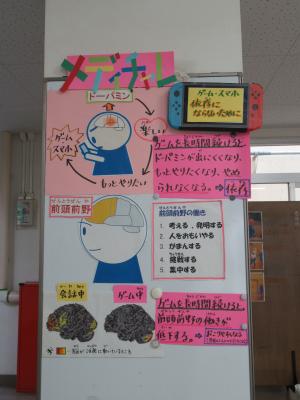 メディチャレ
ゲーム・スマホ
依存に
ならないために
ドーパミン
楽しい
ゲーム
スマホ
もっとやりたい
ゲームを長時間続けると
ドーパミンが出にくくなり、
もっとやりたくなり、やめ
られなくなる。➡依存
ぜんとうぜんや
前頭前野
ぜんとうぜんや はたら
前頭前野の働き
1. 考える、発明する
2. 人をおもいやる
3. がまんする
4. 挑戦する
5. 集中する
会話中
ゲーム中
ゲームを長時間続けると
前頭前野の働きが
低下する。➡おこりやすくなる